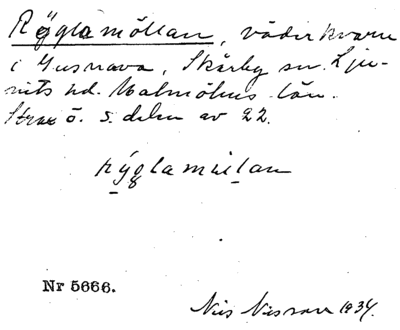 Rÿglamöllan, väderkvarn
i Gusnava, Skårby sn. Lju-
nits hd. Malmöhus län.
Strax ö. s. delen av 22.
rýglamiulan
Nr 5666.
Nils Nilsson 1934.